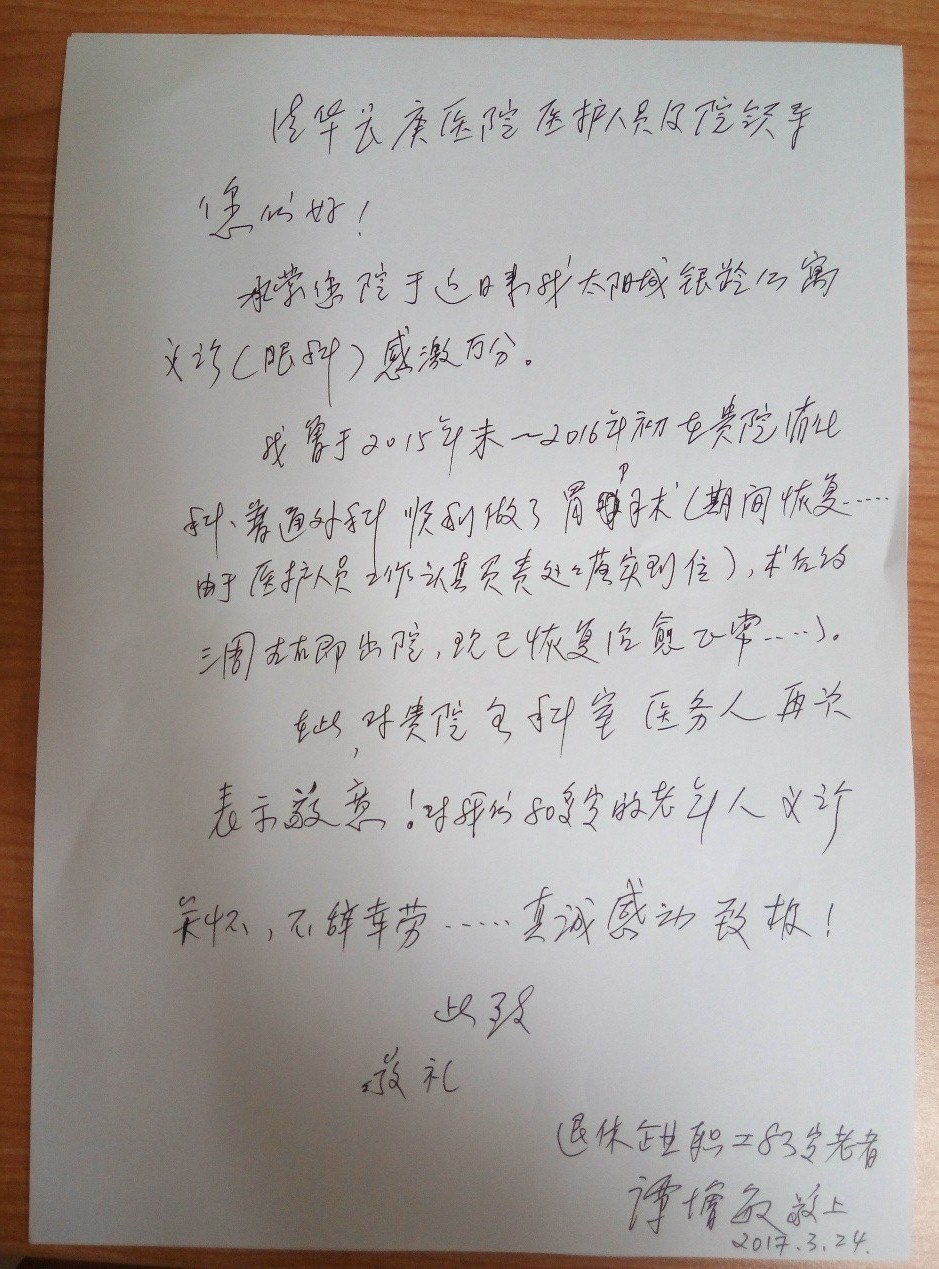 清华长庚医院医护人员及院领导
您们好!
承蒙您院于近日来我太阳城银龄公寓
义诊(眼科)感激万分。
我曾于2015年末~2016年初在贵院消化
科、普通外科顺利做了胃手术(期间恢复……
由于医护人员工作认真负责处处落实到位),术后约
三周左右即出院,现已恢复治愈正常……)。
在此,对贵院全科室医务人再次
表示敬意!对我们80多岁的老年人义诊
关怀,不辞幸劳……真诚感动致极!
此致
敬礼
退休企业职工83岁老者
谭增敏敬上
2017.3.24.